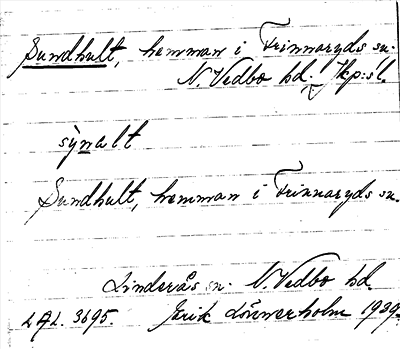 Sundhult, hemman i Frinnaryds sn.
N. Vedbo hd. Jkp:s l.
sùnalt
Sundhult, hemman i Frinnaryds sn.
Linderås sn. N. Vedbo hd
LAL. 3695. Jerik Lönnerholm 1939.